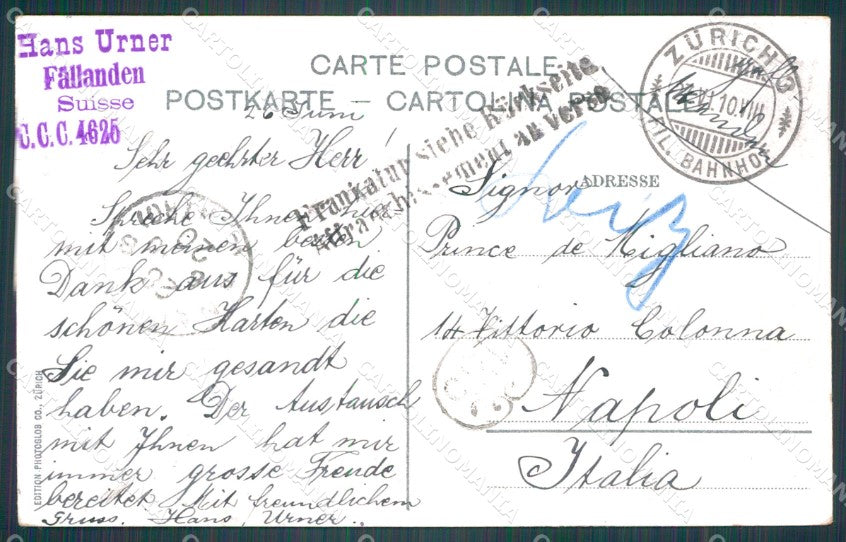 Hans Urner
Fällanden
Suisse
C.C.C. 4625
CARTE POSTALE
POSTKARTE – CARTOLINA POSTALE
Frankatur siehe Rückseite
Affranchissement au verso
ZÜRICH
10.VIII
FIL. BAHNHOF
26 Juni
Sehr geehrter Herr!
Spreche Ihnen hier
mit meinen besten
Dank aus für die
schönen Karten die
Sie mir gesandt
haben. Der Austausch
mit Ihnen hat mir
immer grosse Freude
bereitet Mit freundlichem
Gruss. Hans Urner.
ADRESSE
Signor
Prince de Migliano
14 Vittorio Colonna
Napoli
Italia
EDITION PHOTOGLOB CO., ZÜRICH
CARTOLINOMANIA